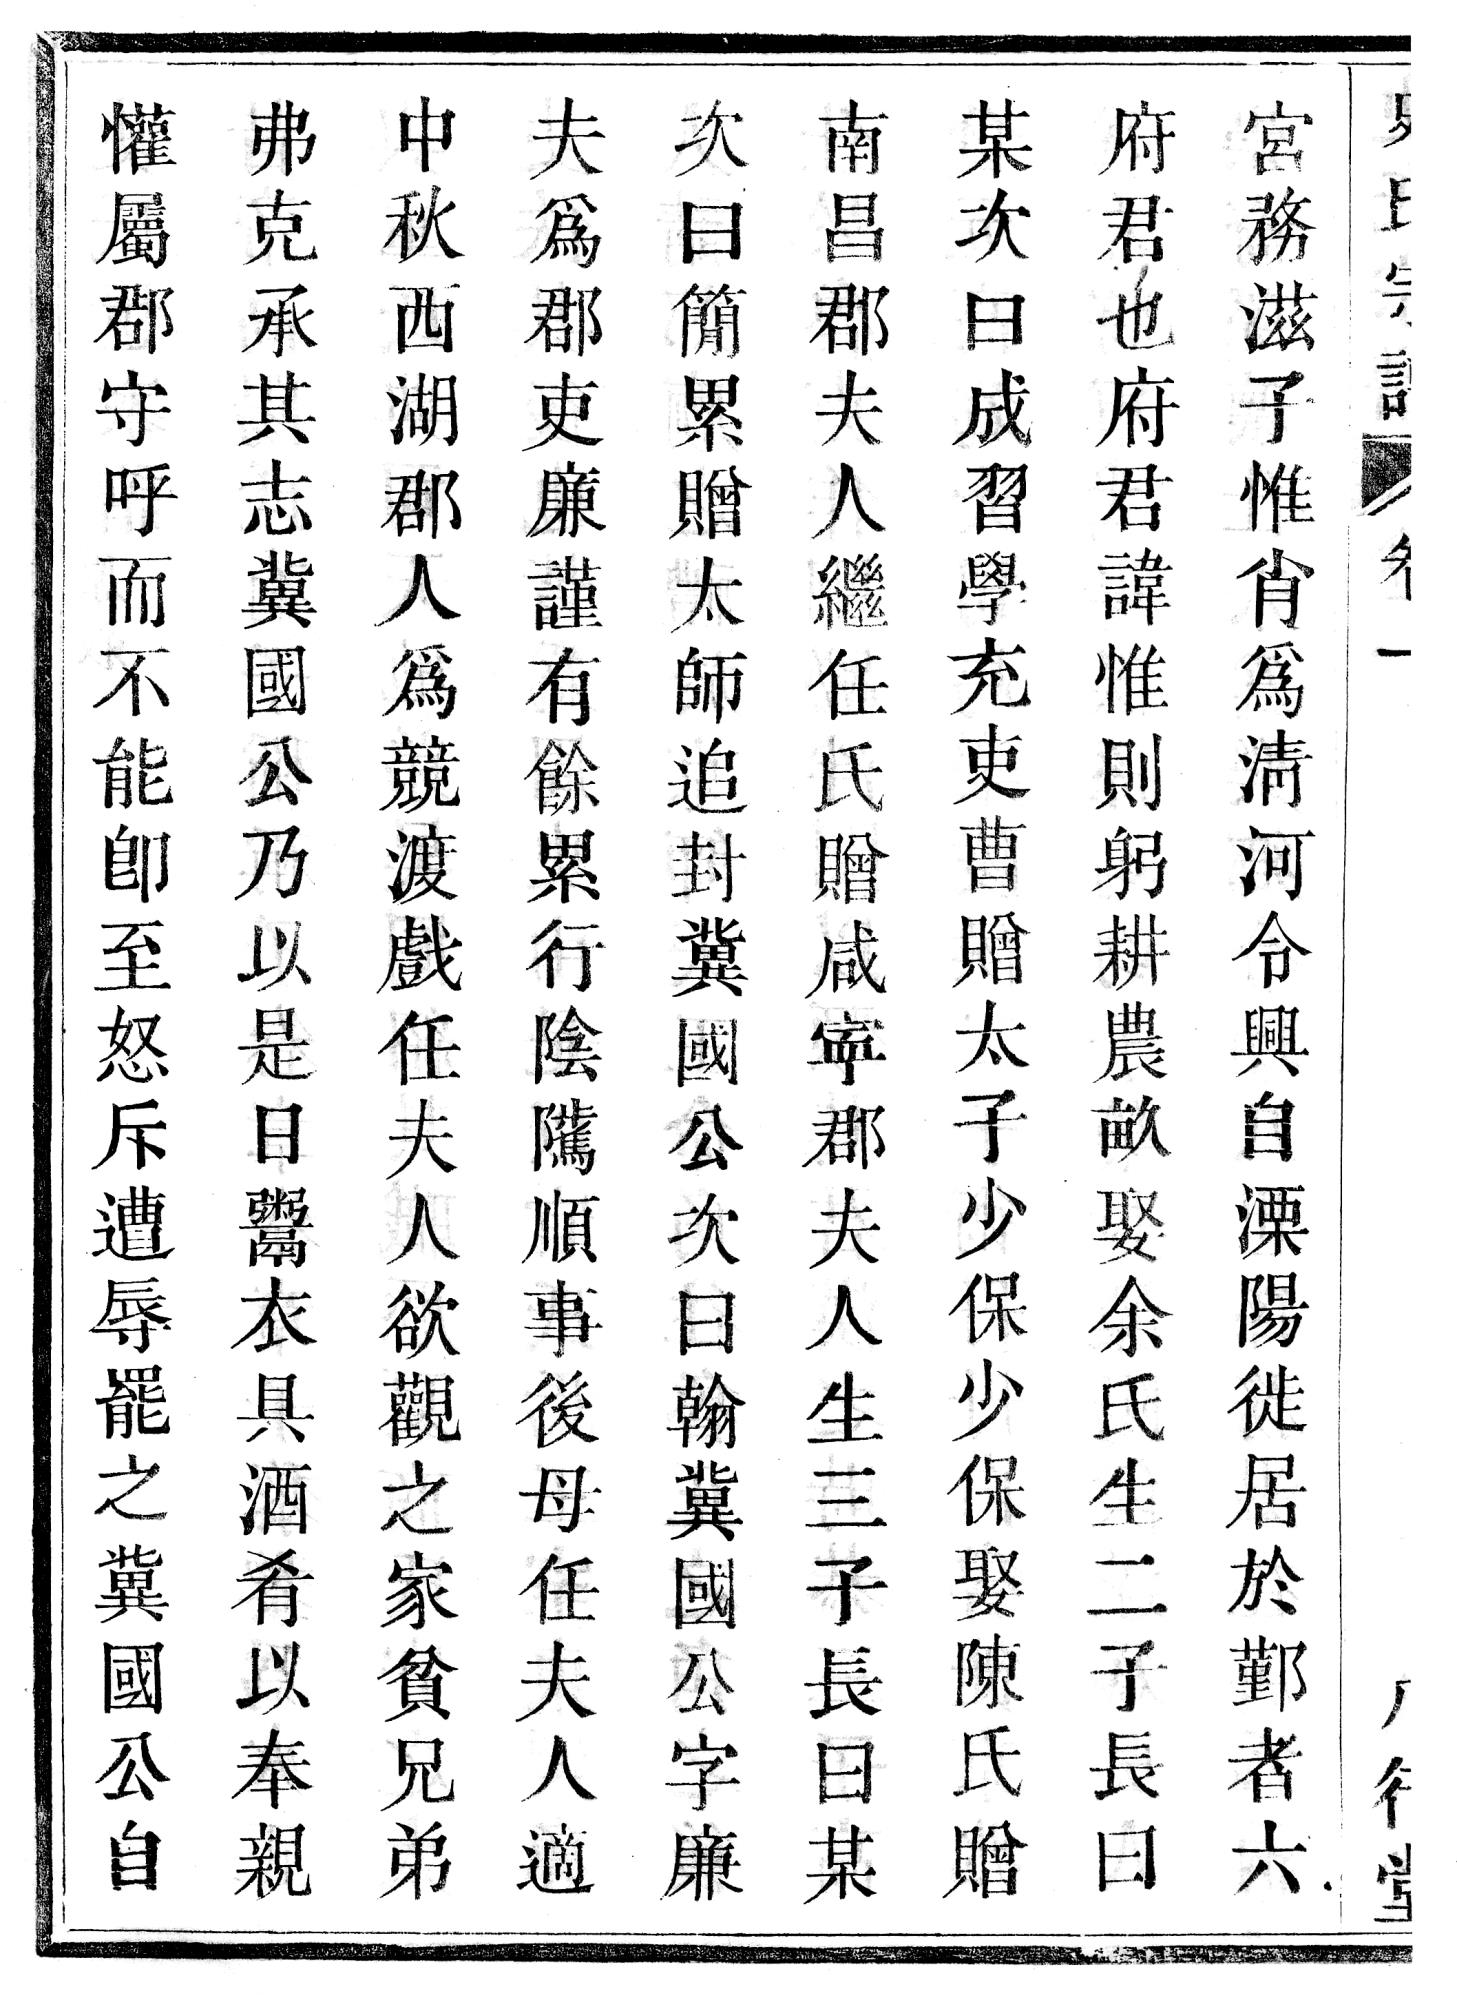 史氏宗譜 卷一 八行堂
宮務滋子惟肖爲淸河令興自溧陽徙居於鄞者六
府君也府君諱惟則躬耕農畝娶余氏生二子長曰
某次曰成習學充吏曹贈太子少保少保娶陳氏贈
南昌郡夫人繼任氏贈咸寧郡夫人生三子長曰某
次曰簡累贈太師追封冀國公次曰翰冀國公字廉
夫爲郡吏廉謹有餘累行陰隲順事後母任夫人適
中秋西湖郡人爲競渡戲任夫人欲觀之家貧兄弟
弗克承其志冀國公乃以是日鬻衣具酒肴以奉親
懽屬郡守呼而不能卽至怒斥遭辱罷之冀國公自